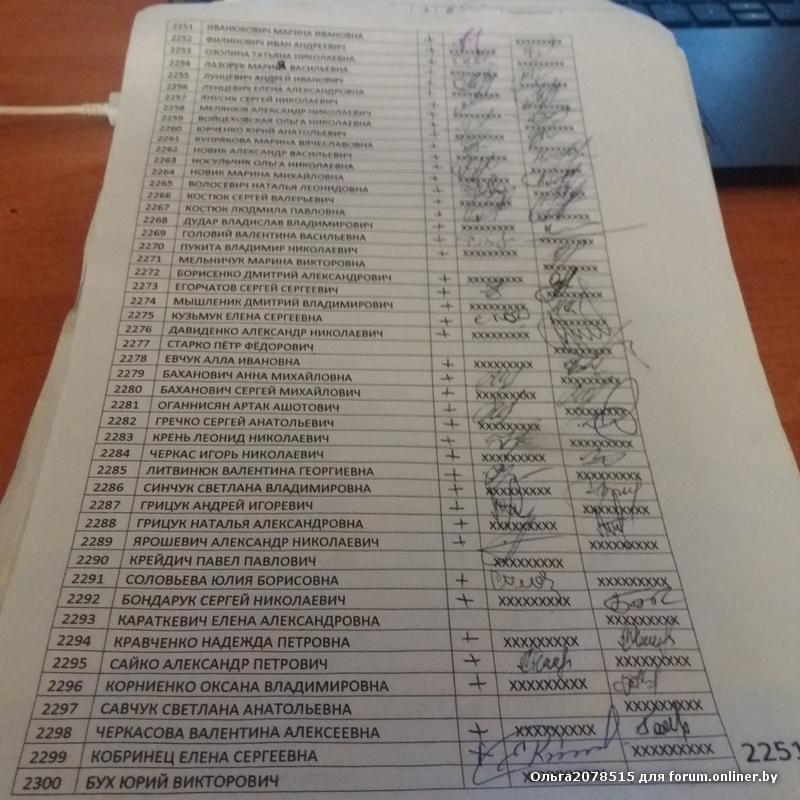 2251 ИВАНЮКОВИЧ МАРИНА ИВАНОВНА +
2252 ФИЛИНОВИЧ ИВАН АНДРЕЕВИЧ +
2253 ОЗОЛИНА ТАТЬЯНА НИКОЛАЕВНА +
2254 ЛАЗОРУК МАРИЯ ВАСИЛЬЕВНА +
2255 ЛУНЦЕВИЧ АНДРЕЙ ИВАНОВИЧ +
2256 ЛУНЦЕВИЧ ЕЛЕНА АЛЕКСАНДРОВНА +
2257 ЯНУСИК СЕРГЕЙ НИКОЛАЕВИЧ +
2258 МЕЛЯНЮК АЛЕКСАНДР НИКОЛАЕВИЧ +
2259 ВОЙЦЕХОВСКАЯ ОЛЬГА НИКОЛАЕВНА +
2260 ЮРЧЕНКО ЮРИЙ АНАТОЛЬЕВИЧ +
2261 КУПРЯКОВА МАРИНА ВЯЧЕСЛАВОВНА +
2262 НОВИК АЛЕКСАНДР ВАСИЛЬЕВИЧ +
2263 НОСУЛЬЧИК ОЛЬГА НИКОЛАЕВНА +
2264 НОВИК МАРИНА МИХАЙЛОВНА +
2265 ВОЛОСЕВИЧ НАТАЛЬЯ ЛЕОНИДОВНА +
2266 КОСТЮК СЕРГЕЙ ВАЛЕРЬЕВИЧ +
2267 КОСТЮК ЛЮДМИЛА ПАВЛОВНА +
2268 ДУДАР ВЛАДИСЛАВ ВЛАДИМИРОВИЧ + xxxxxxxxx
2269 ГОЛОВИЙ ВАЛЕНТИНА ВАСИЛЬЕВНА + xxxxxxxxx
2270 ПУКИТА ВЛАДИМИР НИКОЛАЕВИЧ + xxxxxxxxx
2271 МЕЛЬНИЧУК МАРИНА ВИКТОРОВНА xxxxxxxxx
2272 БОРИСЕНКО ДМИТРИЙ АЛЕКСАНДРОВИЧ + xxxxxxxxx
2273 ЕГОРЧАТОВ СЕРГЕЙ СЕРГЕЕВИЧ + xxxxxxxxx
2274 МЫШЛЕНИК ДМИТРИЙ ВЛАДИМИРОВИЧ + xxxxxxxxx
2275 КУЗЬМУК ЕЛЕНА СЕРГЕЕВНА + xxxxxxxxx
2276 ДАВИДЕНКО АЛЕКСАНДР НИКОЛАЕВИЧ + xxxxxxxxx
2277 СТАРКО ПЁТР ФЁДОРОВИЧ xxxxxxxxx
2278 ЕВЧУК АЛЛА ИВАНОВНА + xxxxxxxxx
2279 БАХАНОВИЧ АННА МИХАЙЛОВНА + xxxxxxxxx
2280 БАХАНОВИЧ СЕРГЕЙ МИХАЙЛОВИЧ + xxxxxxxxx
2281 ОГАННИСЯН АРТАК АШОТОВИЧ + xxxxxxxxx
2282 ГРЕЧКО СЕРГЕЙ АНАТОЛЬЕВИЧ + xxxxxxxxx
2283 КРЕНЬ ЛЕОНИД НИКОЛАЕВИЧ + xxxxxxxxx
2284 ЧЕРКАС ИГОРЬ НИКОЛАЕВИЧ + xxxxxxxxx
2285 ЛИТВИНЮК ВАЛЕНТИНА ГЕОРГИЕВНА + xxxxxxxxx
2286 СИНЧУК СВЕТЛАНА ВЛАДИМИРОВНА + xxxxxxxxx
2287 ГРИЦУК АНДРЕЙ ИГОРЕВИЧ + xxxxxxxxx
2288 ГРИЦУК НАТАЛЬЯ АЛЕКСАНДРОВНА + xxxxxxxxx
2289 ЯРОШЕВИЧ АЛЕКСАНДР НИКОЛАЕВИЧ + xxxxxxxxx
2290 КРЕЙДИЧ ПАВЕЛ ПАВЛОВИЧ xxxxxxxxx
2291 СОЛОВЬЕВА ЮЛИЯ БОРИСОВНА + xxxxxxxxx
2292 БОНДАРУК СЕРГЕЙ НИКОЛАЕВИЧ + xxxxxxxxx
2293 КАРАТКЕВИЧ ЕЛЕНА АЛЕКСАНДРОВНА xxxxxxxxx
2294 КРАВЧЕНКО НАДЕЖДА ПЕТРОВНА + xxxxxxxxx
2295 САЙКО АЛЕКСАНДР ПЕТРОВИЧ + xxxxxxxxx
2296 КОРНИЕНКО ОКСАНА ВЛАДИМИРОВНА + xxxxxxxxx
2297 САВЧУК СВЕТЛАНА АНАТОЛЬЕВНА xxxxxxxxx
2298 ЧЕРКАСОВА ВАЛЕНТИНА АЛЕКСЕЕВНА + xxxxxxxxx
2299 КОБРИНЕЦ ЕЛЕНА СЕРГЕЕВНА + xxxxxxxxx
2300 БУХ ЮРИЙ ВИКТОРОВИЧ
2251
Ольга2078515 для forum.onliner.by